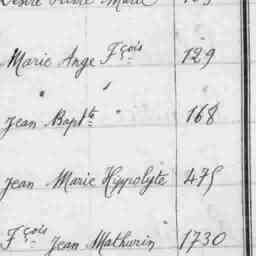 Marie Ange Fçois 129
" " "
Jean Baptte " 168
Jean Marie Hyppolyte 475
Fçois Jean Mathurin 1730